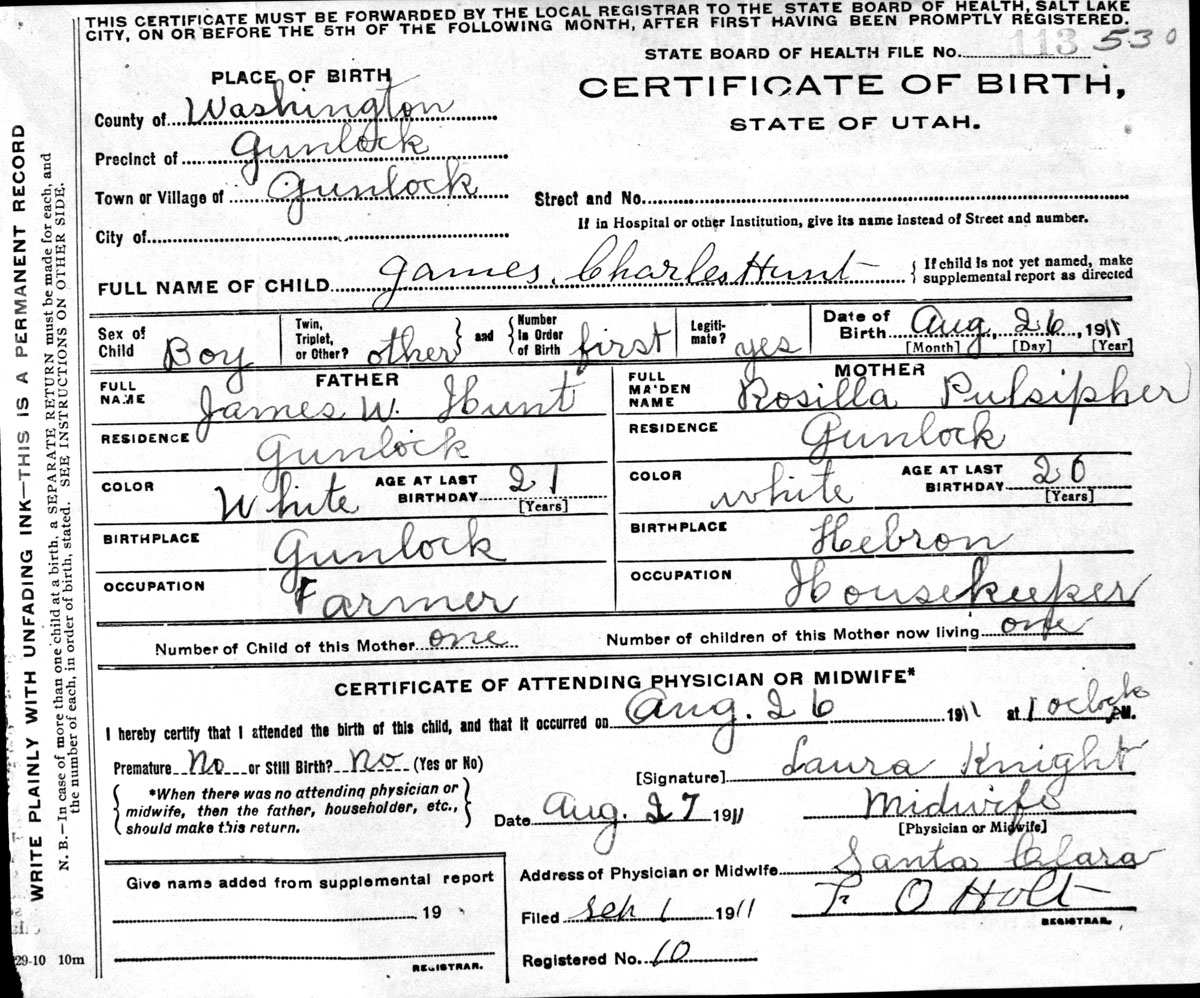 THIS CERTIFICATE MUST BE FORWARDED BY THE LOCAL REGISTRAR TO THE STATE BOARD OF HEALTH, SALT LAKE
CITY, ON OR BEFORE THE 5TH OF THE FOLLOWING MONTH, AFTER FIRST HAVING BEEN PROMPTLY REGISTERED.
STATE BOARD OF HEALTH FILE No. 113 530
PLACE OF BIRTH
CERTIFICATE OF BIRTH,
STATE OF UTAH.
County of Washington
Precinct of Gunlock
Town or Village of Gunlock
Street and No.
If in Hospital or other Institution, give its name instead of Street and number.
City of
FULL NAME OF CHILD James Charles Hunt { If child is not yet named, make
supplemental report as directed
Sex of Child Boy
Twin, Triplet, or Other? other } and { Number in Order of Birth first
Legiti- mate? yes
Date of Birth Aug 26, 1911
[Month] [Day] [Year]
FATHER
FULL NAME James W. Hunt
RESIDENCE Gunlock
COLOR White AGE AT LAST BIRTHDAY 21
[Years]
BIRTHPLACE Gunlock
OCCUPATION Farmer
MOTHER
FULL MAIDEN NAME Rosilla Pulsipher
RESIDENCE Gunlock
COLOR white AGE AT LAST BIRTHDAY 20
[Years]
BIRTHPLACE Hebron
OCCUPATION Housekeeper
Number of Child of this Mother one Number of children of this Mother now living one
CERTIFICATE OF ATTENDING PHYSICIAN OR MIDWIFE*
I hereby certify that I attended the birth of this child, and that it occurred on Aug. 26 1911 at 1 oclock P.M.
Premature No or Still Birth? No (Yes or No)
[Signature] Laura Knight
{ *When there was no attending physician or
midwife, then the father, householder, etc.,
should make this return. }
Date Aug. 27 1911 Midwife
[Physician or Midwife]
Give name added from supplemental report
19
REGISTRAR.
Address of Physician or Midwife Santa Clara
Filed Seh 1 1911 F. O Holt
REGISTRAR.
Registered No. 10
29-10 10m
WRITE PLAINLY WITH UNFADING INK—THIS IS A PERMANENT RECORD
N. B.—In case of more than one child at a birth, a SEPARATE RETURN must be made for each, and
the number of each, in order of birth, stated. SEE INSTRUCTIONS ON OTHER SIDE.